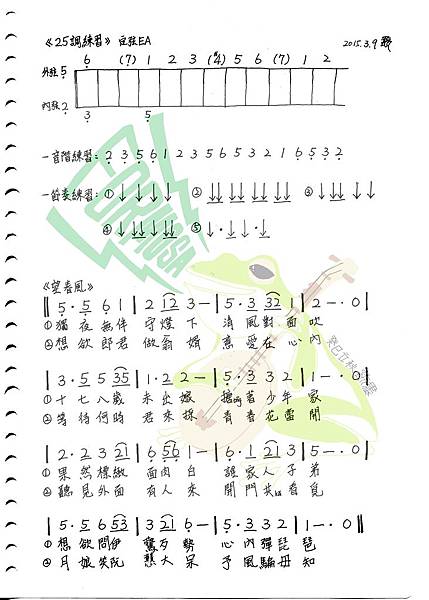 《25調練習》 空弦EA 2015.3.9
6 (7) 1 2 3 (#4) 5 6 (7) 1 2
外弦 5
內弦 2
3 5
一音階練習: 2 3 5 6 1 2 3 5 6 5 3 2 1 6 5 3 2
一節奏練習: ① ↓ ↓ ↓ ↓ ② ↓↓ ↓↓ ↓↓ ↓↓ ③ ↓ ↓↓ ↓ ↓
④ ↓ ↓↓ ↓ ↓↓ ⑤ ↓ · ↓ ↓ · ↓
FORMOSA
《望春風》
‖ 5 · 5 6 1 | 2 12 3 — | 5 · 3 32 1 | 2 — · 0 |
①獨夜無伴 守燈下 清風對面吹
②想欲郎君 做翁婿 意愛在心內
| 3 · 5 5 35 | 1 · 2 2 — | 5 · 3 3 2 | 1 — · 0 |
①十七八歲 未出嫁 搪著少年家
②等待何時 君來採 青春花當開
| 2 · 2 3 21 | 6 56 1 — | 6 · 1 21 3 | 5 — · 0 |
①果然標緻 面肉白 誰家人子弟
②聽見外面 有人來 開門共看覓
| 5 · 5 6 53 | 3 21 6 — | 5 · 3 3 2 | 1 — · 0 ‖
①想欲問伊 驚歹勢 心內彈琵琶
②月娘笑阮 憨大呆 予風騙毋知